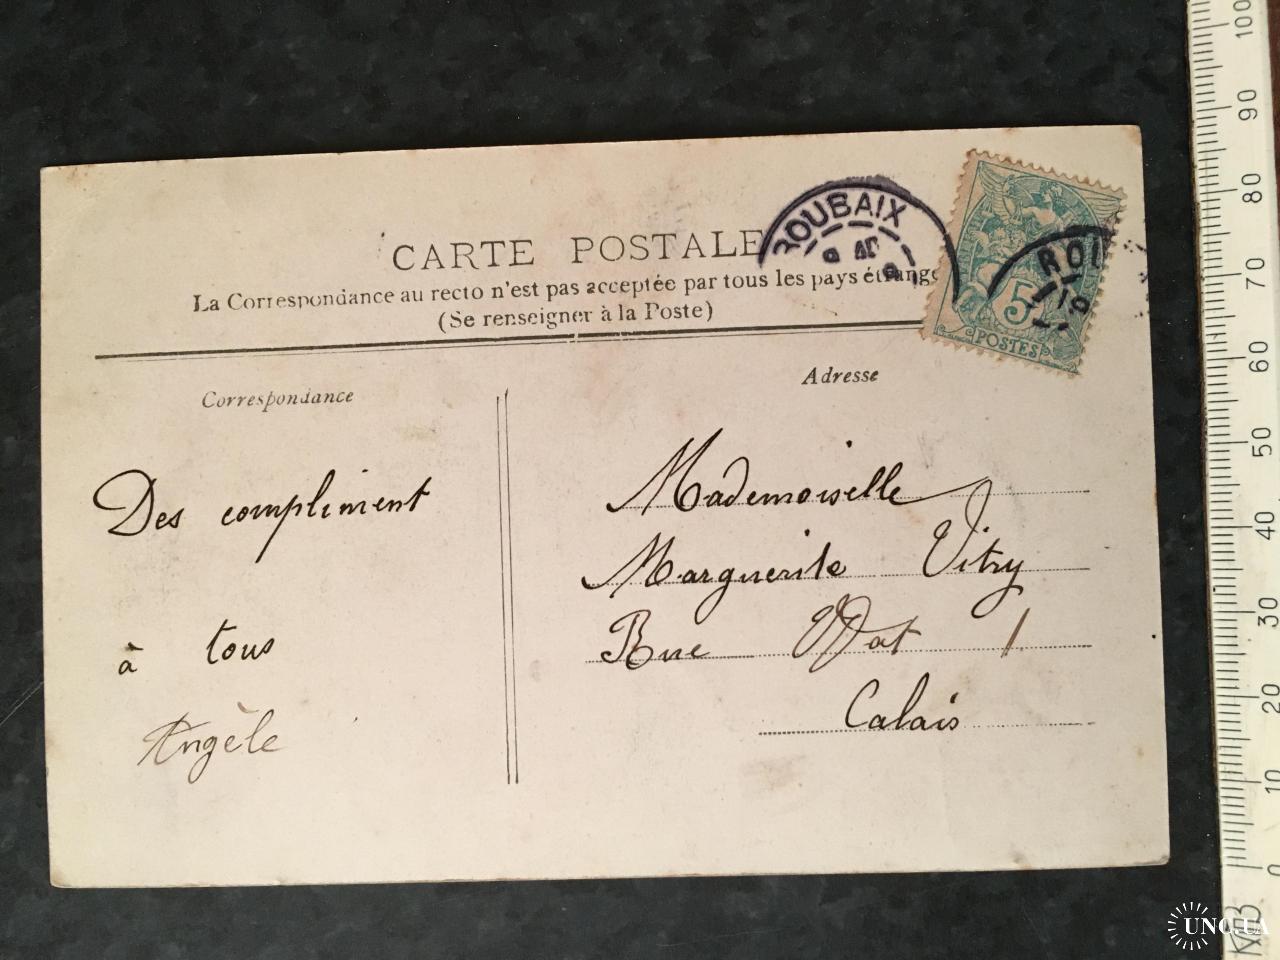 CARTE POSTALE
La Correspondance au recto n'est pas acceptée par tous les pays étrange
(Se renseigner à la Poste)
ROUBAIX
ROU
5
POSTES
Correspondance
Des compliment
à tous
Angèle
Adresse
Mademoiselle
Marguerite Vitry
Rue Wat 1
Calais
100
90
80
70
60
50
40
30
20
10
0
UNC.UA